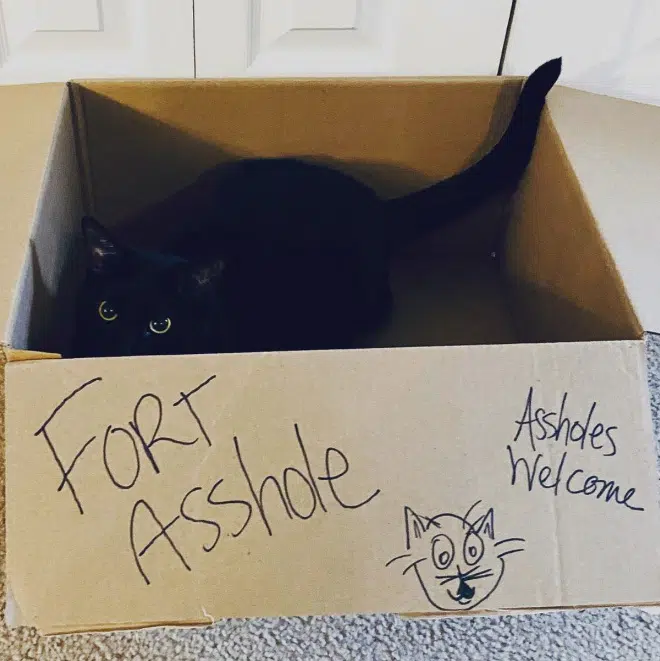 Fort
Asshole
Assholes
Welcome